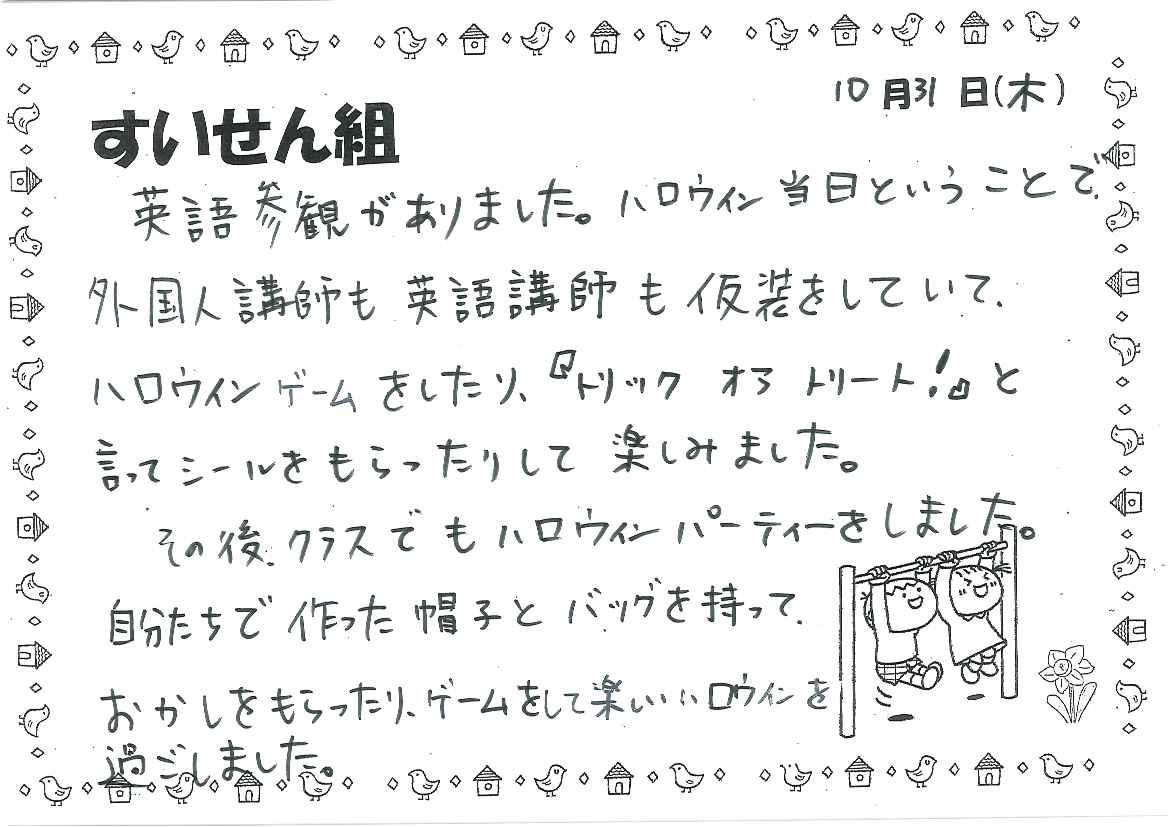 10月31日(木)
すいせん組
英語参観がありました。ハロウィン当日ということで、
外国人講師も英語講師も仮装をしていて、
ハロウィンゲームをしたり、『トリック オア トリート!』と
言ってシールをもらったりして楽しみました。
その後、クラスでもハロウィンパーティーをしました。
自分たちで作った帽子とバッグを持って、
おかしをもらったり、ゲームをして楽しいハロウィンを
過ごしました。